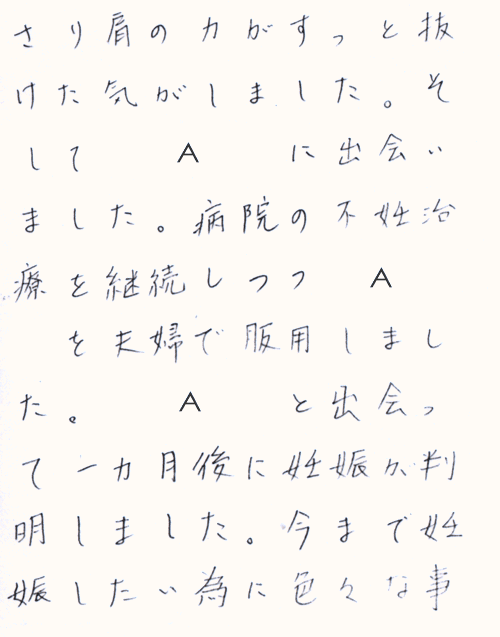 さり肩の力がすっと抜
けた気がしました。そ
して A に出会い
ました。病院の不妊治
療を継続しつつ A
を夫婦で服用しまし
た。 A と出会っ
て一カ月後に妊娠が判
明しました。今まで妊
娠したい為に色々な事